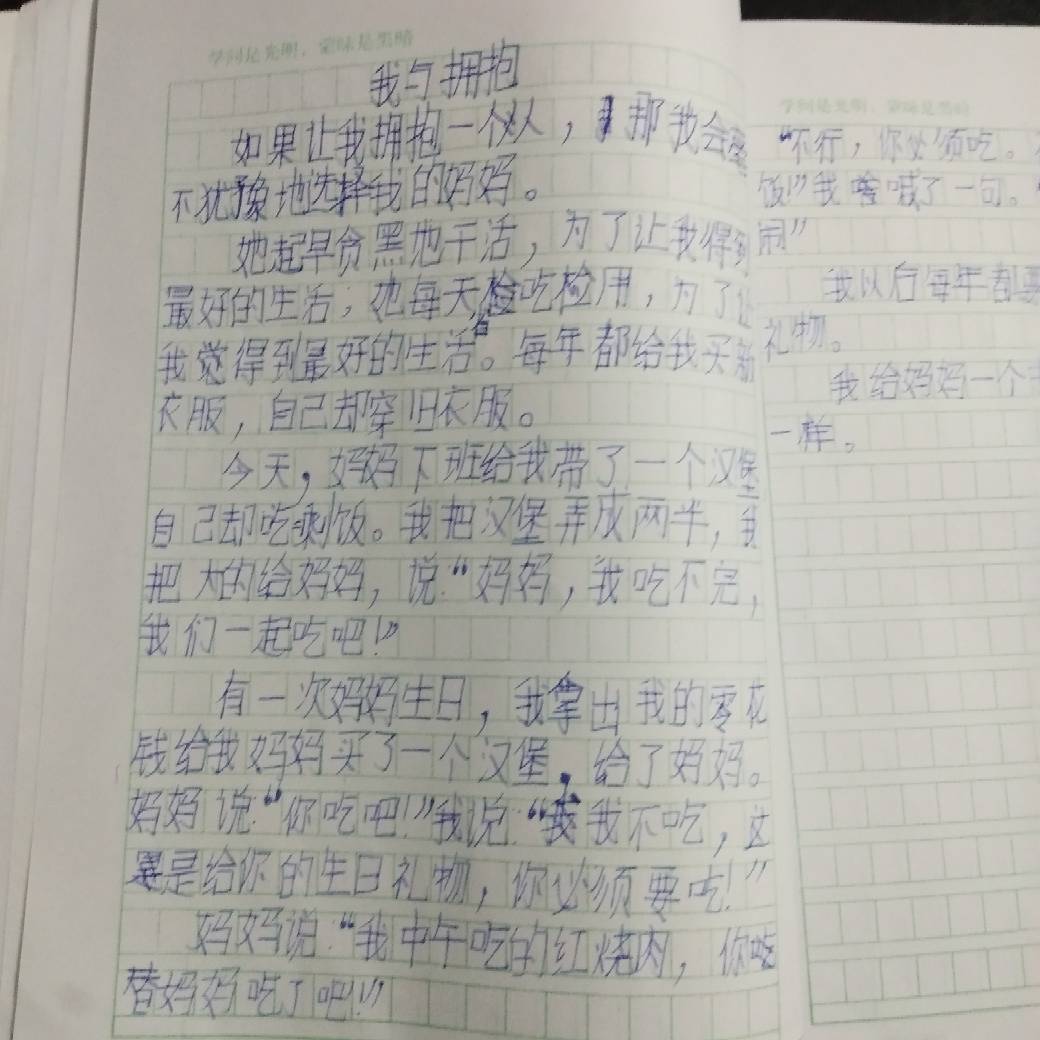 学问是光明，蒙昧是黑暗
我与拥抱
如果让我拥抱一个人，那我会毫
不犹豫地选择我的妈妈。
她起早贪黑地干活，为了让我得到
最好的生活，她每天检吃检用，为了让
我觉得到最好的生活。每年都给我买新
衣服，自己却穿旧衣服。
今天，妈妈下班给我带了一个汉堡
自己却吃剩饭。我把汉堡弄成两半，我
把大的给妈妈，说："妈妈，我吃不完，
我们一起吃吧！"
有一次妈妈生日，我拿出我的零花
钱给我妈妈买了一个汉堡，给了妈妈。
妈妈说："你吃吧！"我说："我不吃，这
是给你的生日礼物，你必须要吃！"
妈妈说："我中午吃的红烧肉，你吃
替妈妈吃了吧！"
学问是光明，蒙昧是黑暗
"不行，你必须吃。
饭！"我喊了一句。"
闹"
我以后每年都要
礼物。
我给妈妈一个
一样。